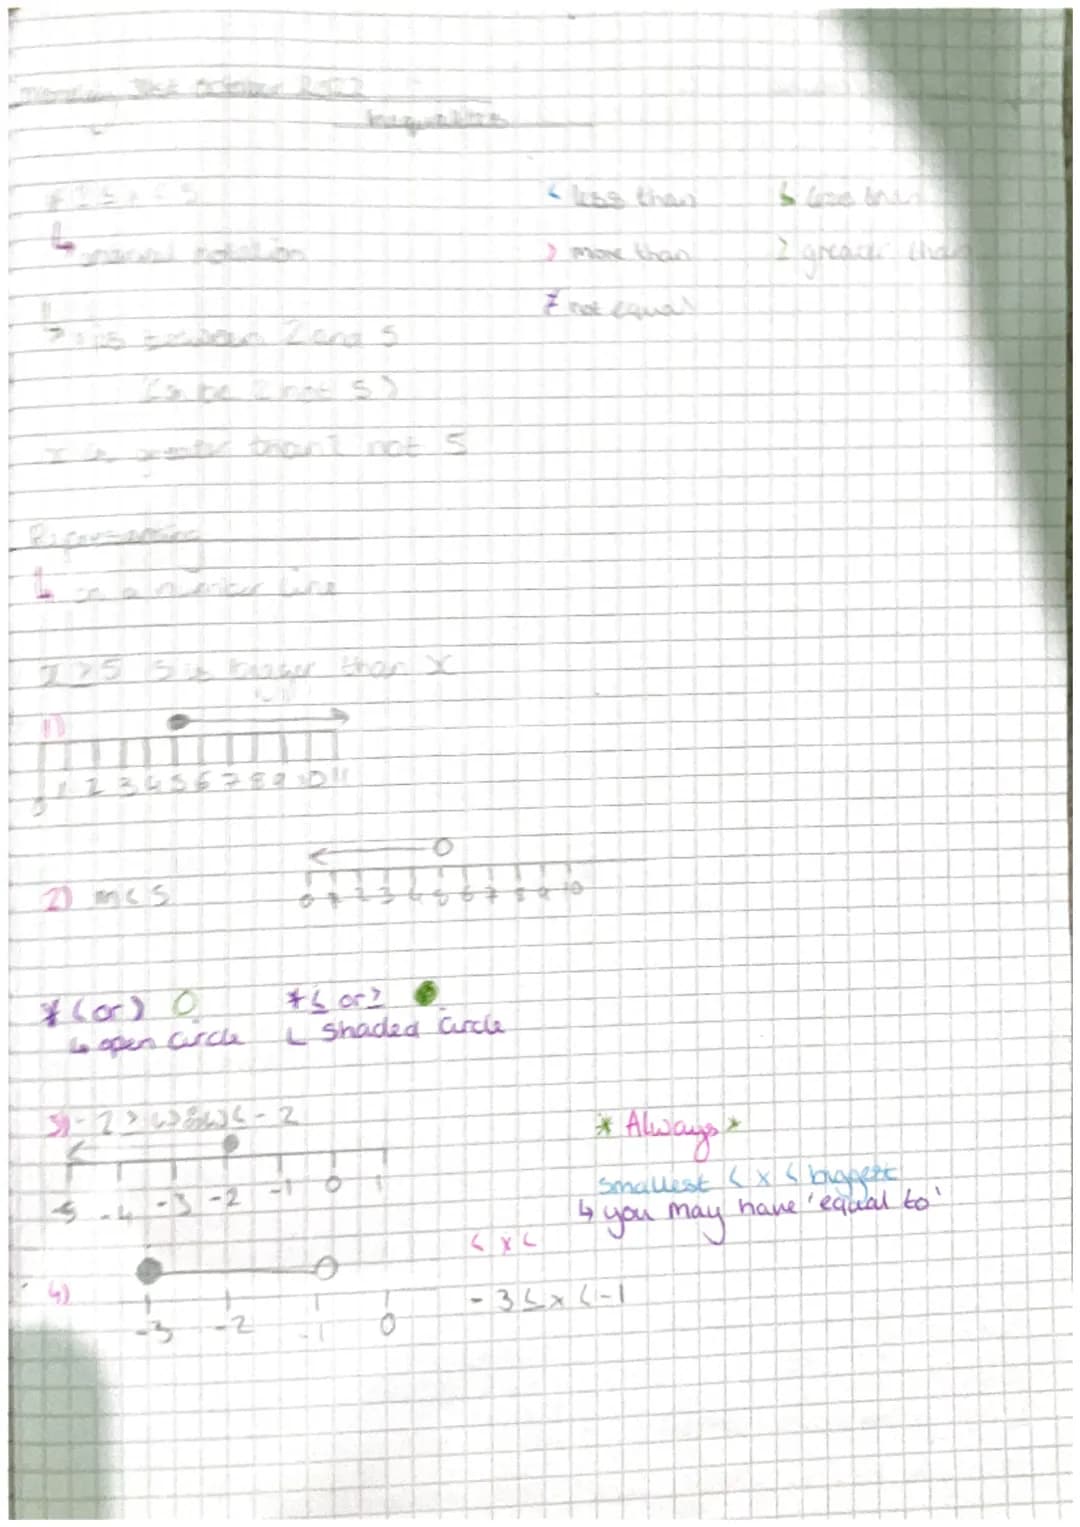 Monday 31st October 2022
Inequalities
2 ≤ x < 5
< less than
≤ less than
↳ notation
> more than
≥ greater than
≠ not equal
↳ is between 2 and 5
(can be 2 not 5)
x is greater than 2 not 5
Representing
↳ on a number line
x ≥ 5 5 is bigger than x
1)
0 1 2 3 4 5 6 7 8 9 10 11
2) m < 5
0 1 2 3 4 5 6 7 8 9 10
* < or > ○
* ≤ or ≥ ●
↳ open circle
↳ shaded circle
3) -2 ≥ w
w ≤ -2
* Always *
smallest < x < biggest
-5 -4 -3 -2 -1 0 1
↳ you may have 'equal to'
< x <
4)
-3 ≤ x < -1
-3 -2 -1 0